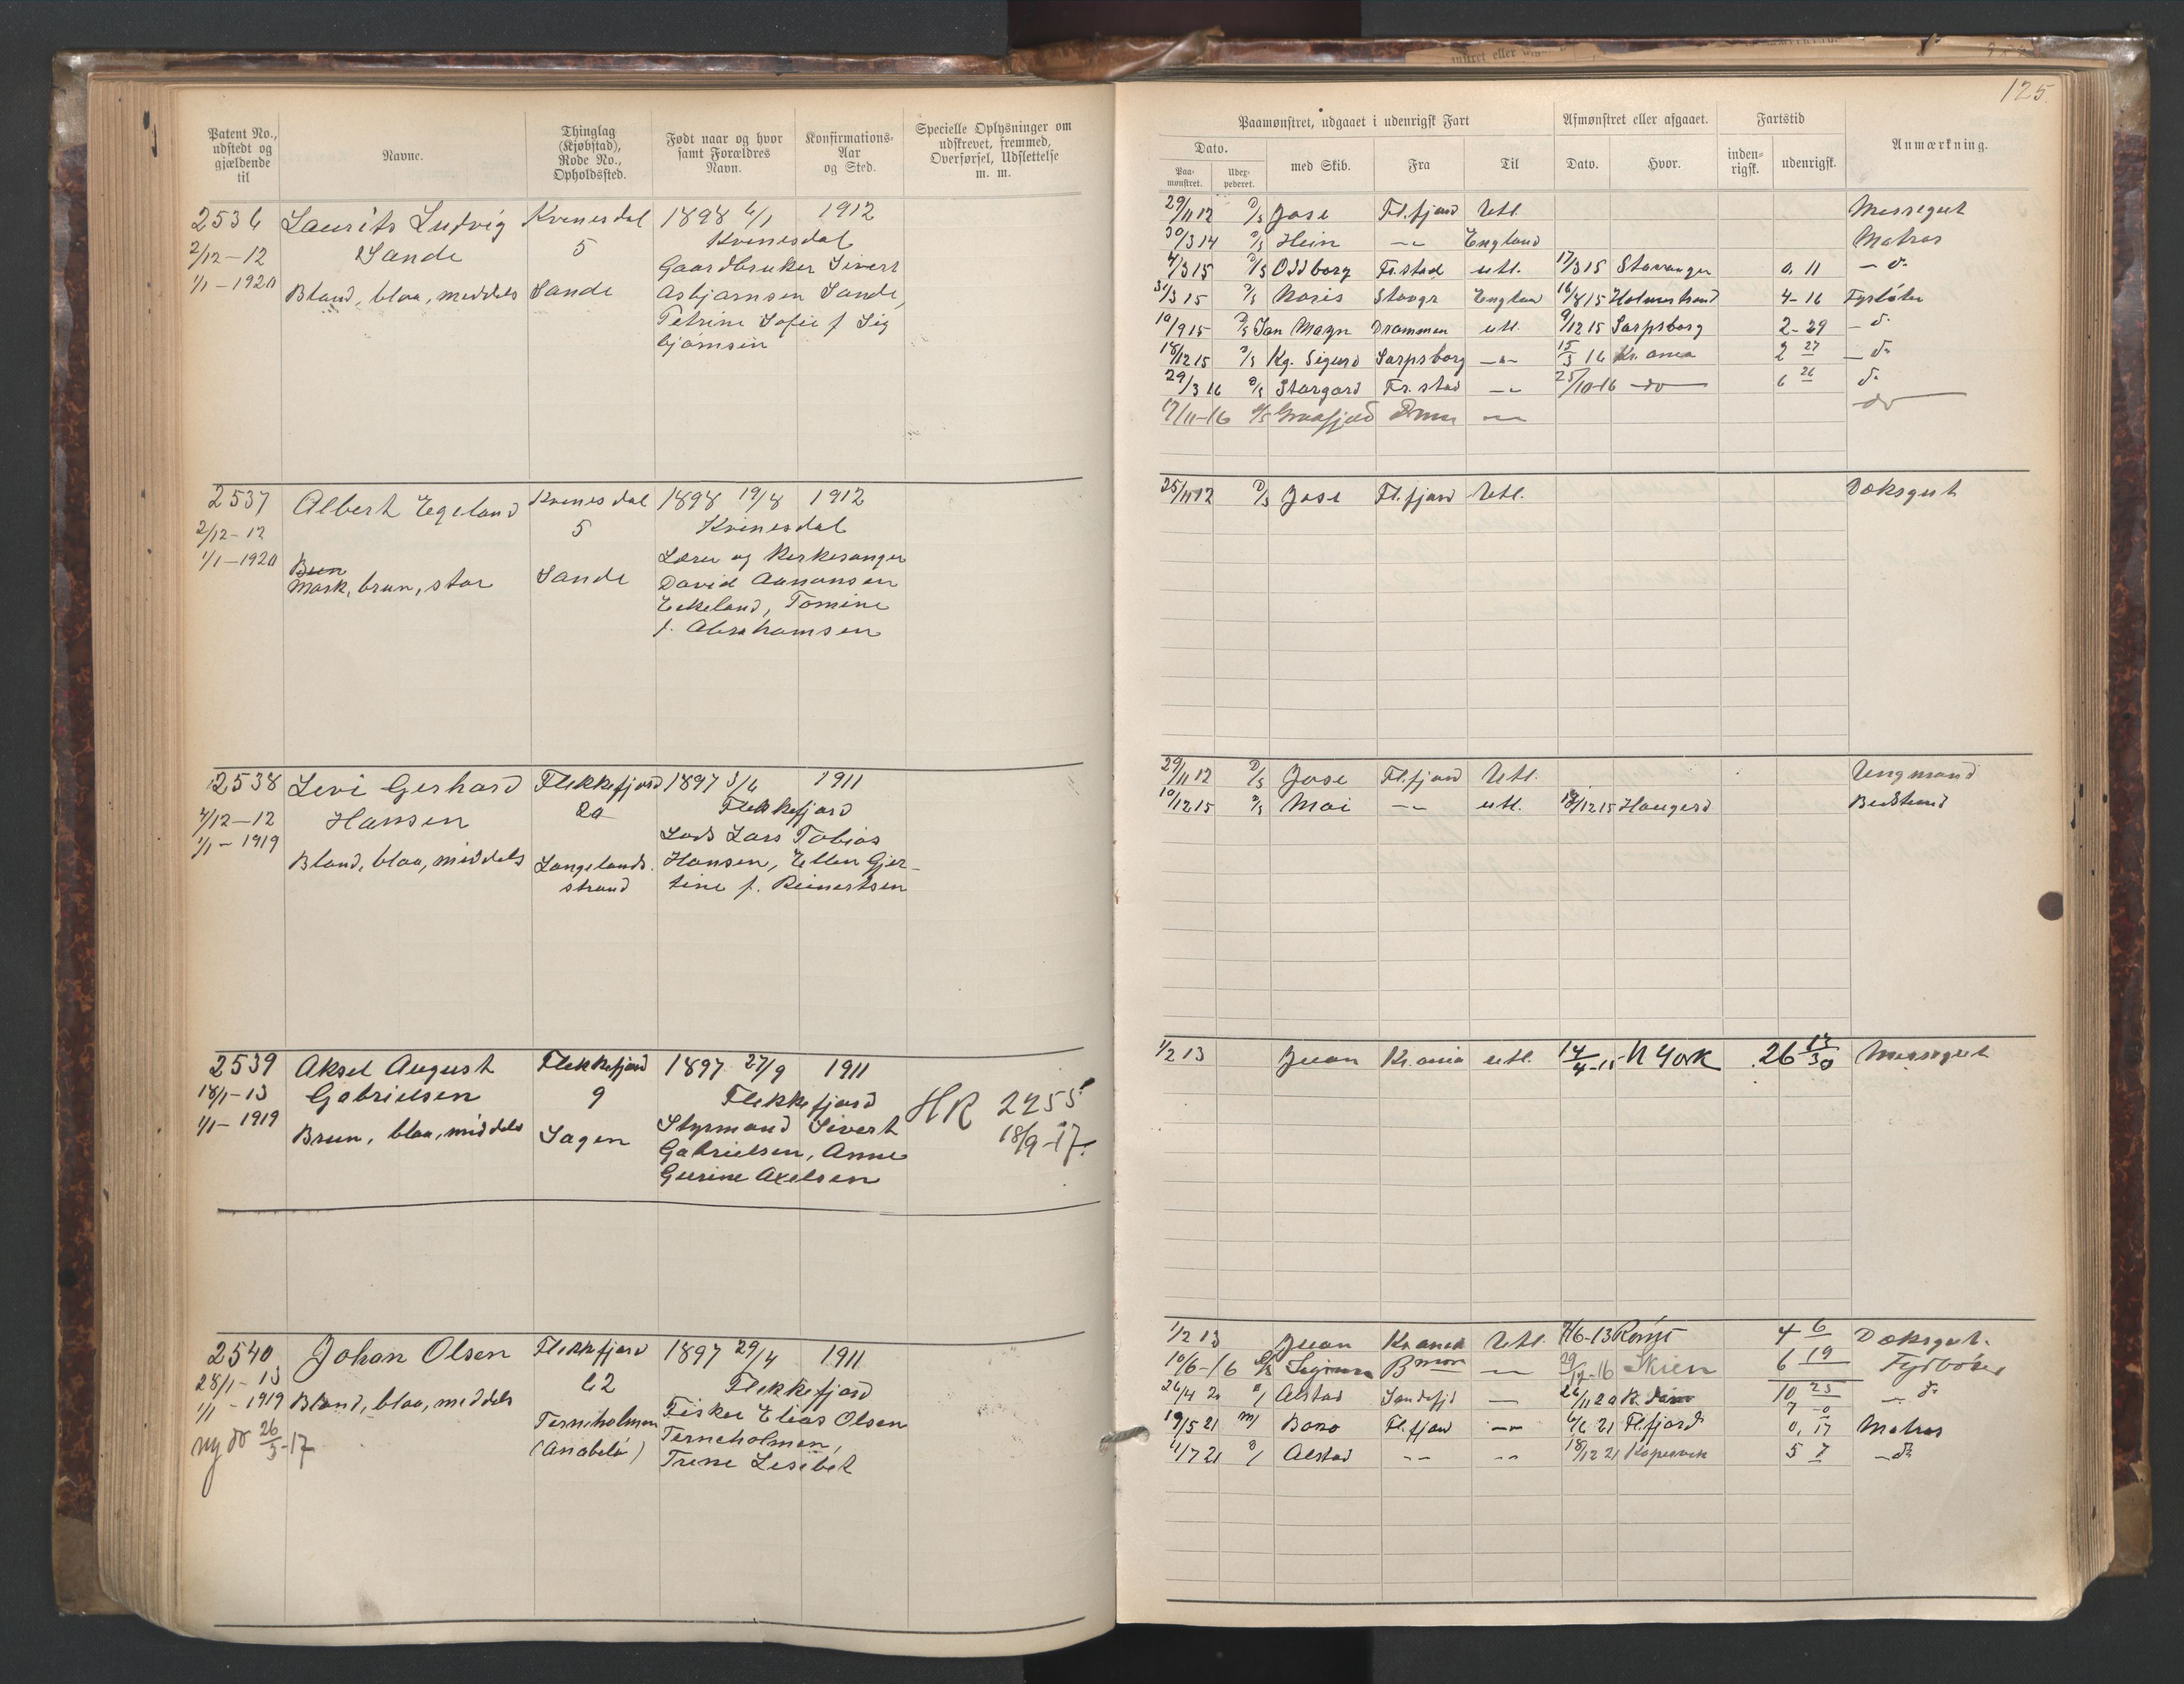 125.
Patent No., udstedt og gjældende til
Navne.
Thinglag (Kjøbstad), Rode No., Opholdssted.
Født naar og hvor samt Forældres Navn.
Konfirmations-Aar og Sted.
Specielle Oplysninger om udskrevet, fremmed, Overførsel, Udslettelse m. m.
Paamønstret, udgaaet i udenrigsk Fart
Afmønstret eller afgaaet.
Fartstid
Anmærkning.
Dato.
Paa-mønstret.
Udex-pederet.
med Skib.
Fra
Til
Dato.
Hvor.
inden-rigsk.
udenrigsk.
2536 Laurits Ludvig Kvinesdal 1898 6/1 1912
2/12-12 Sande 5 Kvinesdal
1/1-1920 Blond, blaa, middels Sande Gaardbruker Sivert
Asbjørnsen Sande,
Petrine Sofie f Sig
bjørnsen
29/11 12 D/S Jose Fl.fjord Utl. Messegut
30/3 14 D/S Hein -"- England Matros
4/3 15 D/S Oddborg Fr.stad utl. 17/3 15 Stavanger 0, 11 - do
31/3 15 D/S Noris Stavgr England 16/8 15 Holmestrand 4-16 Fyrbøter
10/9 15 D/S San Magn Drammen utl. 9/12 15 Sarpsborg 2-29 - do
18/12 15 D/S Kg. Sigurd Sarpsborg -"- 15/3 16 Kr.ania 2 27 - do
29/3 16 D/S Stargard Fr.stad -"- 25/10-16 -do- 6 26 do
17/11-16 D/S Graafjeld Drmn -"- do
2537 Albert Egeland Kvinesdal 1898 19/8 1912
2/12-12 5 Kvinesdal
1/1-1920 Brun
Mørk, brun, stor Sande Lærer og Kirkesanger
David Aanonsen
Eekeland, Tomine
f. Abrahamsen
25/11 12 D/S Jose Fl.fjord Utl. Dæksgut
2538 Levi Gerhard Flekkefjord 1897 3/6 1911
4/12-12 Hansen 20 Flekkefjord
1/1-1919 Blond, blaa, middels Langelands-strand Lods Lars Tobias
Hansen, Ellen Gjer-
tine f. Reinertsen
29/11 12 D/S Jose Fl.fjord Utl. Ungmand
10/12 15 D/S Mai -"- utl. 19/12 15 Haugesd Bestmd
2539 Aksel August Flekkefjord 1897 27/9 1911
18/1-13 Gabrielsen 9 Flekkefjord HR 2255
1/1-1919 Brun, blaa, middels Lagen Styrmand Sivert 18/9-17.
Gabrielsen, Anne
Gurine Axelsen
1/2 13 Juan Kr.ania utl. 14/4-15 N York 26 13/30 Messegut
2540 Johan Olsen Flekkefjord 1897 29/4 1911
28/1-13 62 Flekkefjord
1/1-1919 Blond, blaa, middels Terneholmen (Anabeløi) Fisker Elias Olsen
ny do 26/5-17 Terneholmen,
Trine Lisebet
1/2 13 Juan Kr.ania Utl. 7/6-13 4 6 Dæksgut.
10/6-16 D/S B -"- 29/12-16 Skien 6 19 Fyrbøter
26/4 20 D/ Alstad Sandefjd - 26/11 20 10 25 - do
7 0
19/5 21 M/ Boro Fl.fjord -"- 6/6 21 Fl.fjord 0, 17 Matros
11/7 21 D/ Alstad -"- -"- 18/12 21 Kopervik 5 7 - do